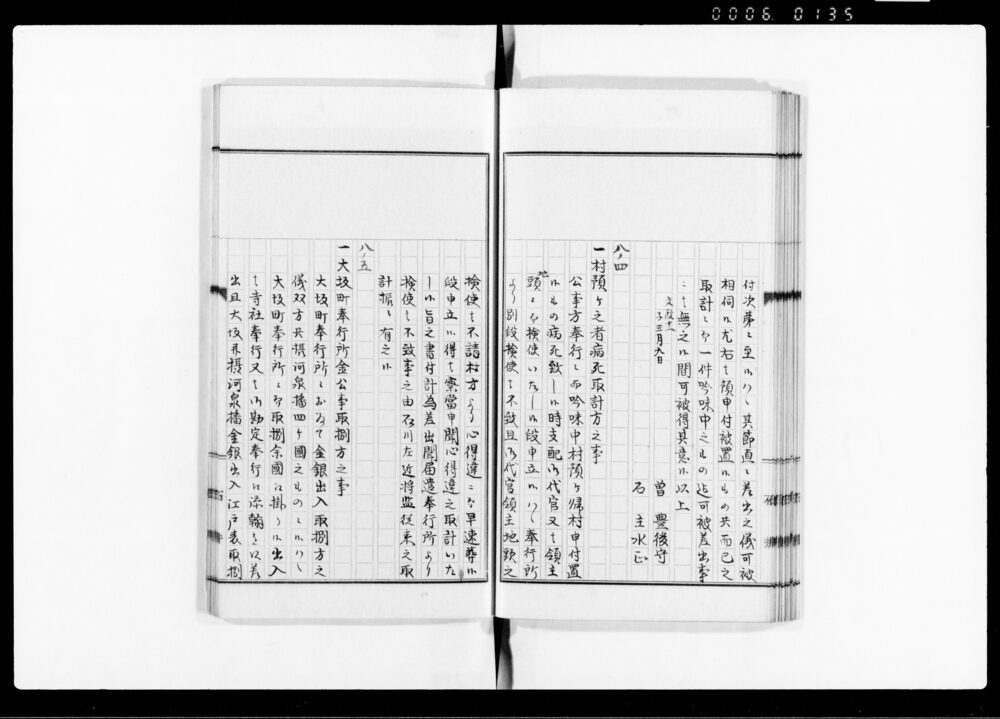 0006.0135
付次第ニ至候ハヽ其節直ニ差出之儀可被
相伺候尤右ニ預申付被置候もの共而已之
取計ニ而一件吟味中之もの迄可被差出事
ニ者無之候間可被得其意候以上
文政十一
子三月九日
曽 豊後守
石 主水正
八ノ四
一村預ケ之者病死取計方之事
公事方奉行ニ而吟味中村預ケ帰村申付置
候もの病死致し候時支配御代官又者領主
地
頭ニ而検使いたし候段申立候ハヽ奉行所
より別段検使者不致且御代官領主地頭之
検使者不請村方より心得違ニ而早速葬候
段申立候得者察當申聞心得違之取計いた
し候旨之書付計為差出聞届遣奉行所より
検使者不致事之由石川左近将監従来之取
計振ニ有之候
八ノ五
一大坂町奉行所金公事取捌方之事
大坂町奉行所ニおゐて金銀出入取捌方之
儀双方共摂河泉播四ケ國之ものニ候ハヽ
大坂町奉行所ニ而取捌余國江掛り候出入
者寺社奉行又者御勘定奉行江添翰を以差
出且大坂并摂河泉播金銀出入江戸表取捌